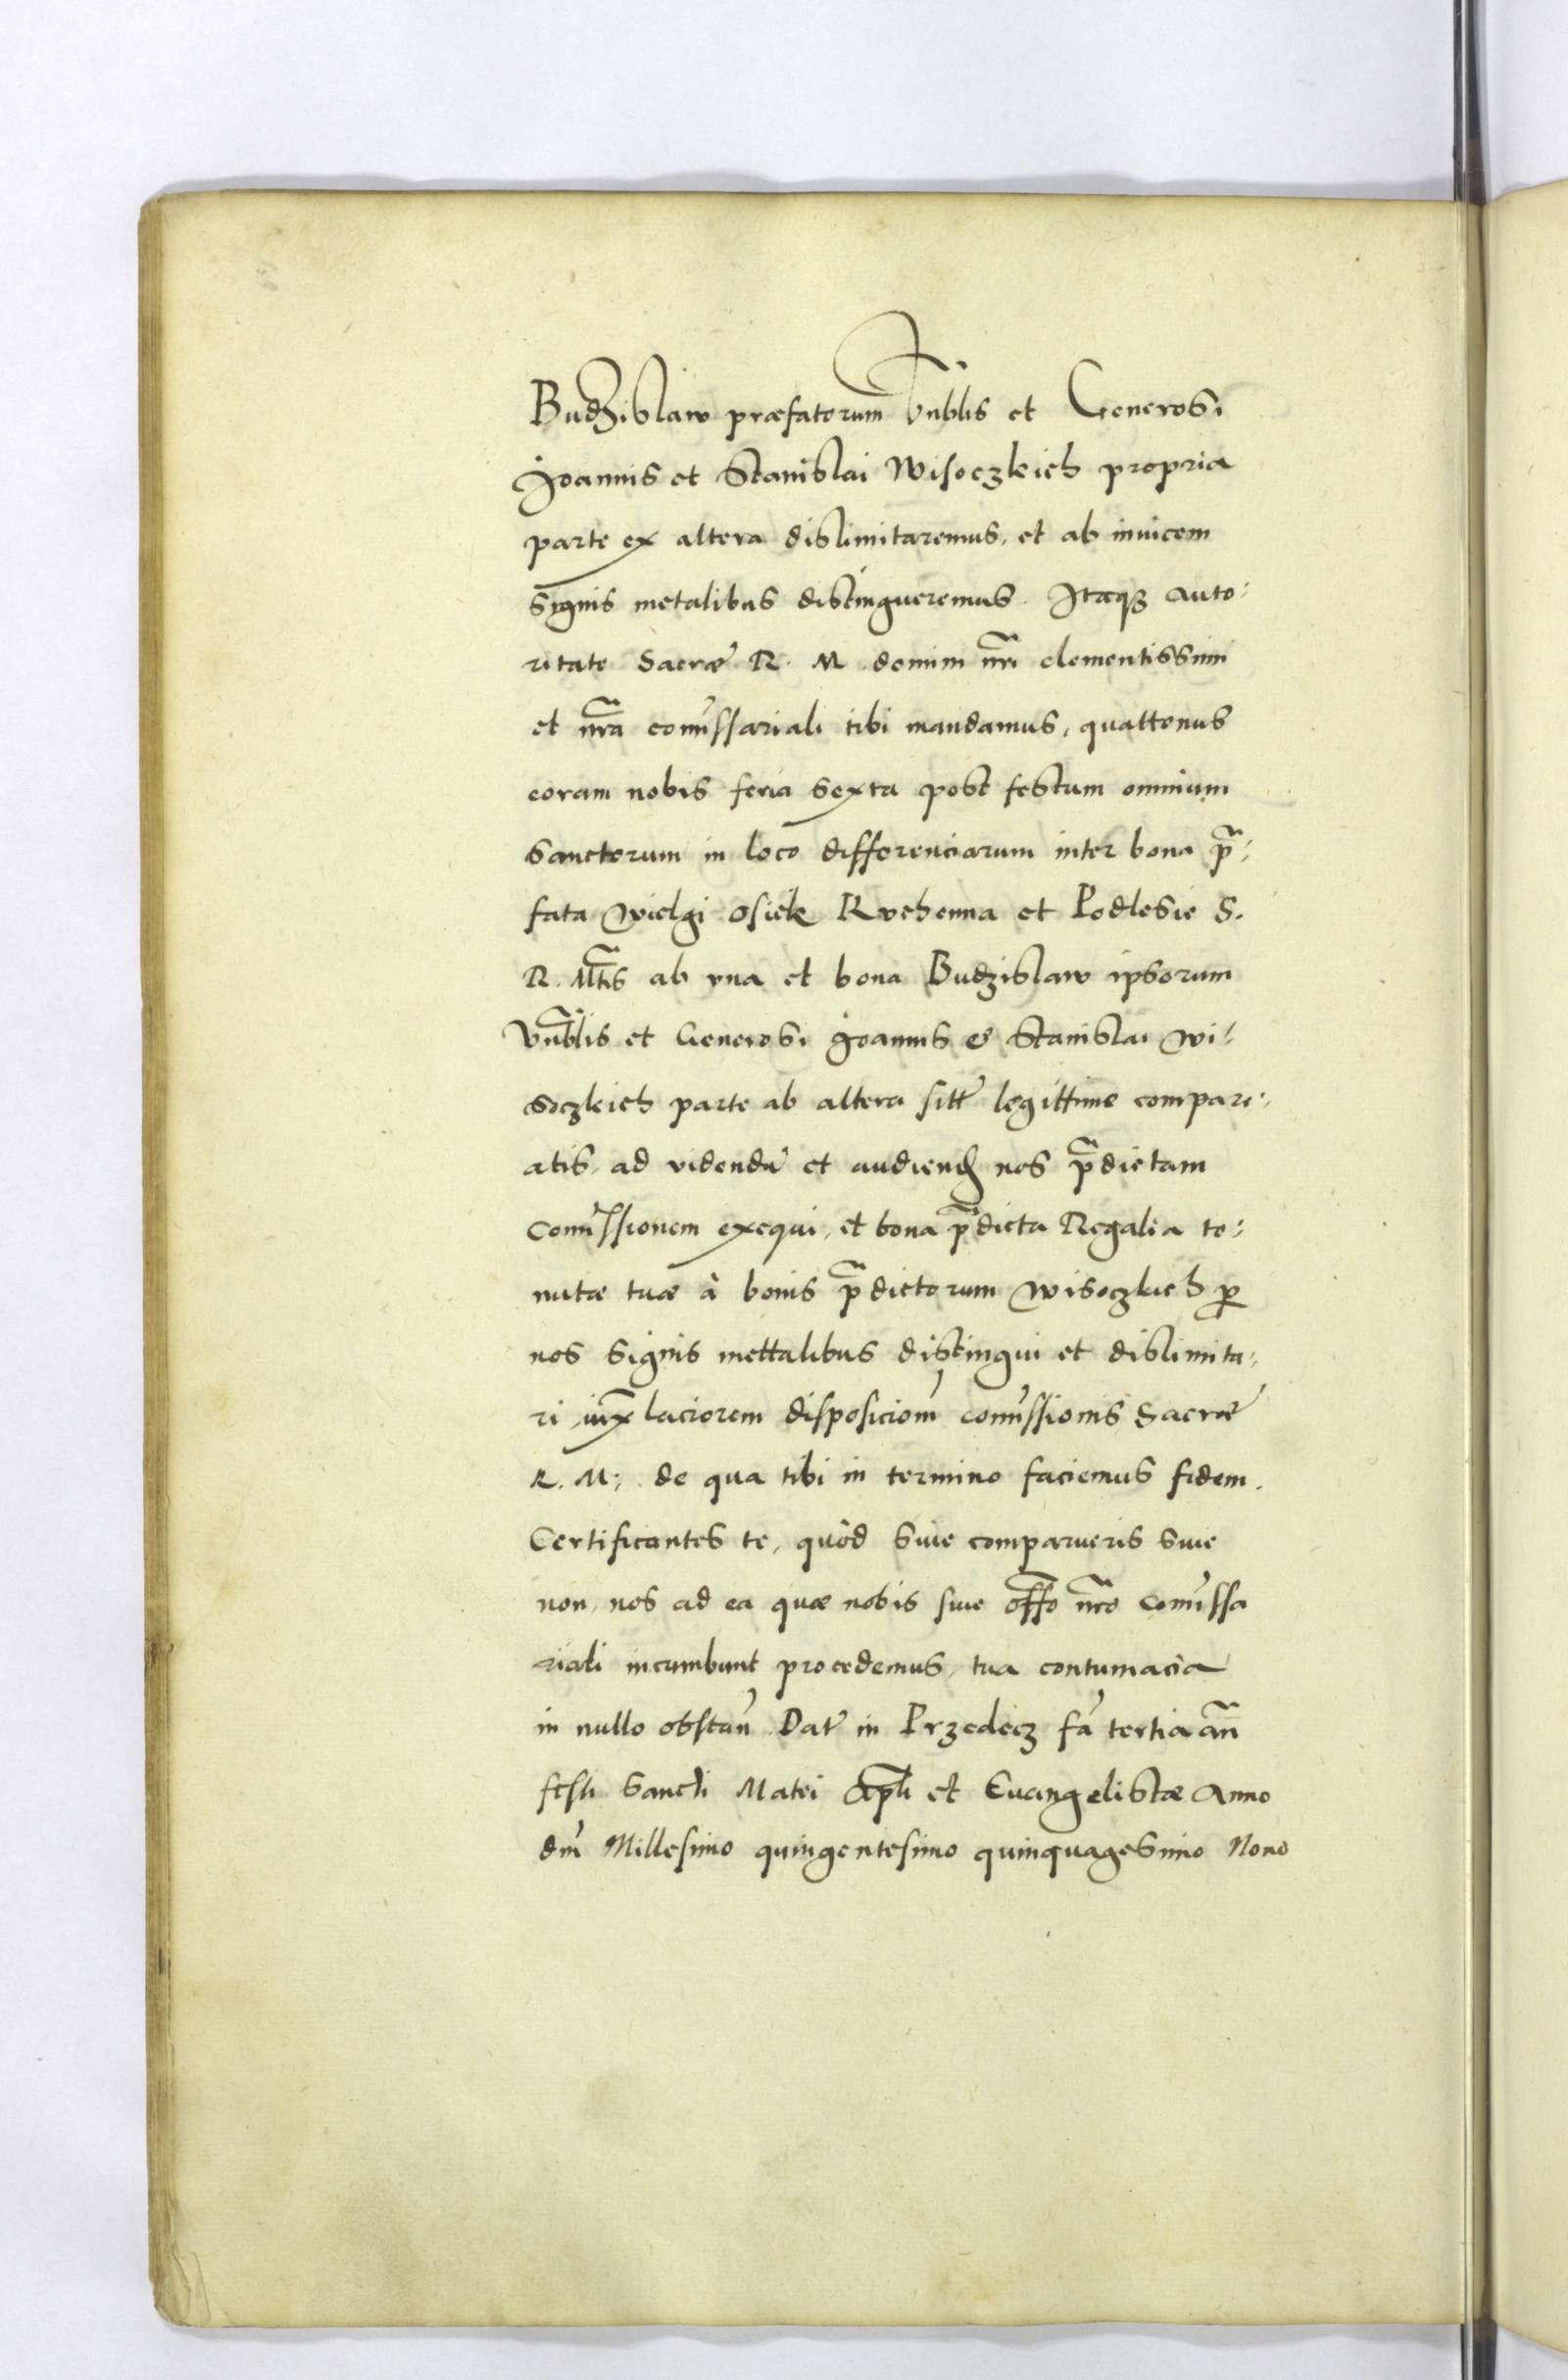 Budzislaw præfatorum Vnblis et Generosi
Joannis et Stanislai Wisoczkich propria
parte ex altera dislimitaremus, et ab inuicem
signis metalibus distingueremus. Itaqз auto:
ritate Sacræ R. M. domini nr̃i clementissimi
et nr̃a com̃issariali tibi mandamus, quattenus
coram nobis feria sexta post festum omnium
Sanctorum in loco differenciarum inter bona p̃:
fata Wielgi Osiek Ruchenna et Podlesie S.
R. Mt̃is ab vna et bona Budzislaw ipsorum
Vnb̃lis et Generosi Joannis & Stanislai Wi:
soczkich parte ab altera sitr̃ legittime compare:
atis, ad videndũ et audiend nos p̃dictam
Com̃issionem exequi, et bona p̃dicta Regalia te:
nutæ tuæ à bonis p̃dictorum Wisoczkich ꝑ
nos signis mettalibus distingui et dislimita:
ri, iux̃ laciorem disposiciom̃ com̃issionis Sacræ
R. M: de qua tibi in termino faciemus fidem.
Certificantes te, quòd siue comparueris siue
non, nos ad ea quæ nobis siue off̃o nr̃o Com̃issa
riali incumbunt procedemus, tua contumacia
in nullo obstañ. Dat̃ in Przedecz fã tertia añ
festi Sancti Matei Ap̃li et Euangelistæ Anno
dm̃ Millesimo quingentesimo quinquagesimo Nono